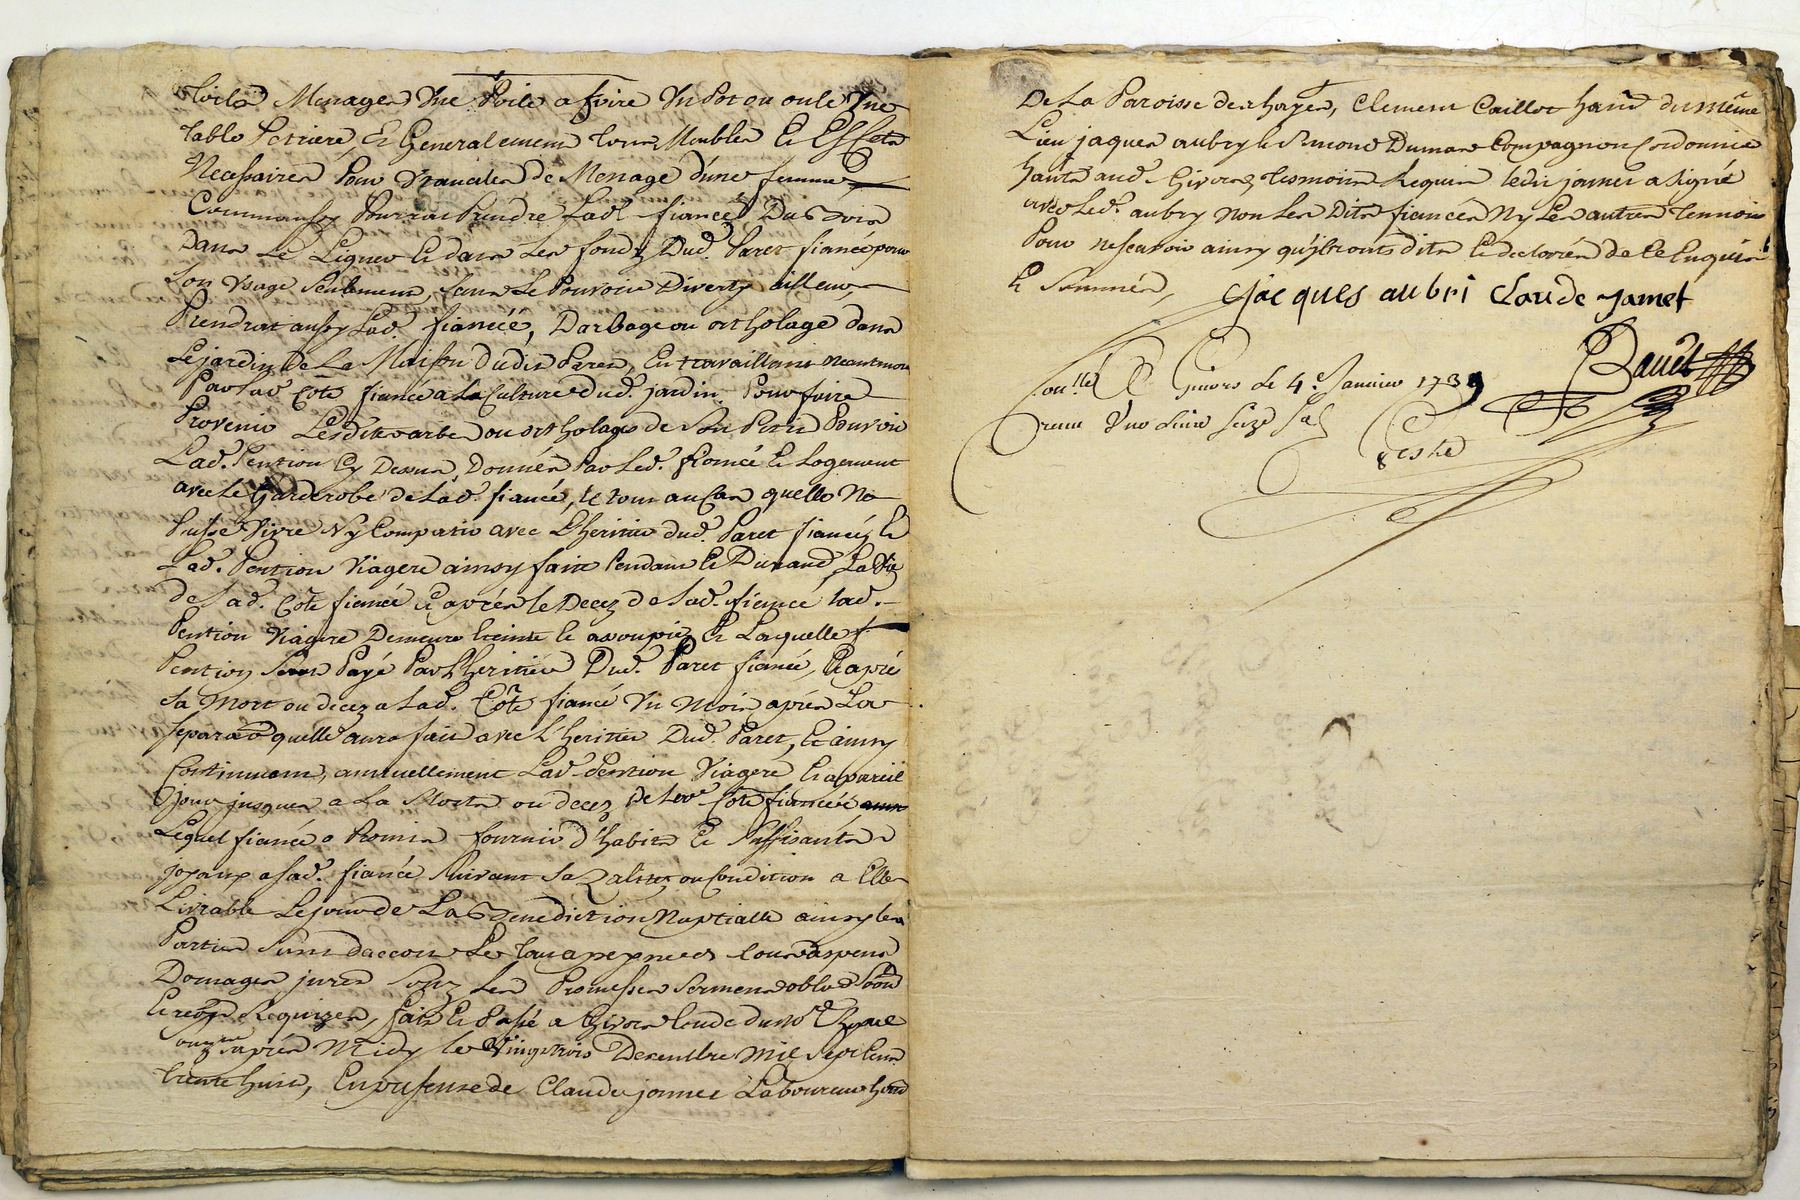 Menager Une Poile a frire Un Pot ou oule Une
table Petriere, Et Generalement tous Meubles Et Effets
Necessaires Pour Ustancilles de Menage d'une femme
Commansy Pourra Prendre Lad. fiancée Du Bois
Dans Les Lignes Et dans Les fonds Dud. Paret fiancé pour
Son Usage Seulement, Sans Le Pouvoir Diverty ailleur,
Prendrat aussy Lad. fiancée, Darbage ou ortholage dans
Le jardin de La Maison Dudit Paret, En travaillant neantmoins
Par lad. Côte fiancée a La Culture dud. jardin Pour faire
Provenir Lesdits arbe ou ortholages de Son
Lad. Pention Cy Dessus Donnée Par Led. fiancé Et Logement
avec le Garderobe de Lad. fiancée, le tout au Cas quelle Ne
Puisse Vivre Ny Compatir avec L'heritier dud. Paret fiancé, Et
Lad. Pention Viagere ainsy faite Pendant Et Durand La Vie
de Lad. Côte fiancée Et après le Decez de Lad. fiancée lad.
Pention Viagere Demeure Eteinte Et asoupie, Et Laquelle
Pention Sera Payé Par L'heritier Dud. Paret fiancé, Et après
Sa Mort ou decez a Lad. Côte fiancée Un Mois après La
separaõn quelle aura fait avec L'heritier Dud. Paret, Et ainsy
Continuant, annuellement Lad. Pention Viagere, Et a pareil
jour jusques a La Morts ou decez de Lad. Côte fiancée
Lequel fiancé a Promis fournir d'habits Et Suffisants
joyaux a Lad. fiancée Suivant Sa Qalitée ou Condition a Elle
Livrable Le jour de La Benediction Nuptialle ainsy les
Parties Sont daccour Le tout a peyne de tous despens
Domages jurés Souz Les Promesses Serment
Requizes, fait Et Passé a Givors Etude du noʳᵉ Royal
Souzⁿᵉ après Midy le Vingtrois Decembre Mil Sept Cens
trente huit, En presense de Claude jamet Laboureur habᵗ
De La Paroisse de chayes, Clement Caillot habᵗ du même
Lieu jaques aubry Et Simond Dumas Compagnon Cordonnier
habts aud. Givors tesmoins Requis ledit jamet a Signé
avec Led. aubry non Les Dits fiancés Ny Les autres temoins
Pour ne scavoir ainsy qu'ils ont dits Et declarés de Ce Enquis
Et Sommés,
Jacques aubri Claude Jamet
Barret
Conˡˡᵉ A Givors Le 4ᵉ Janvier 1739
receu Une Livre Seize Sols
Teste